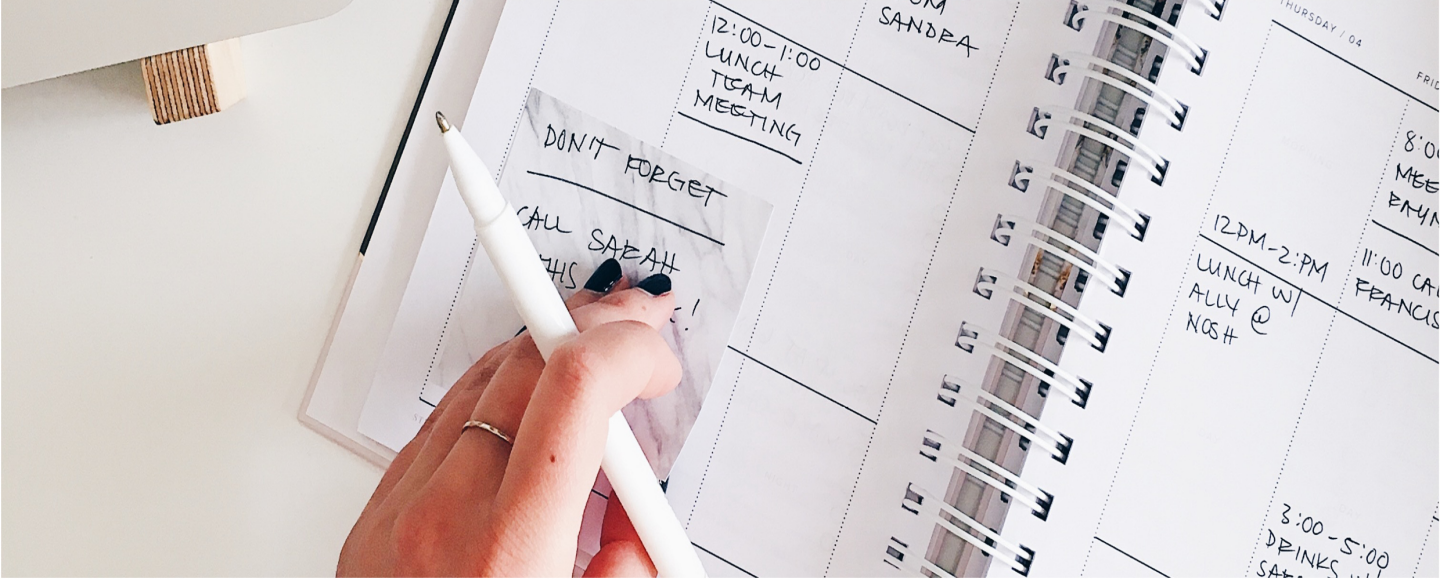 SANDRA
12:00-1:00
LUNCH
TEAM
MEETING
DON'T FORGET
CALL SARAH
THIS
!
THURSDAY / 04
12PM-2:PM
LUNCH W/
ALLY @
NOSH
11:00
FRANCIS
3:00-5:00
DRINKS